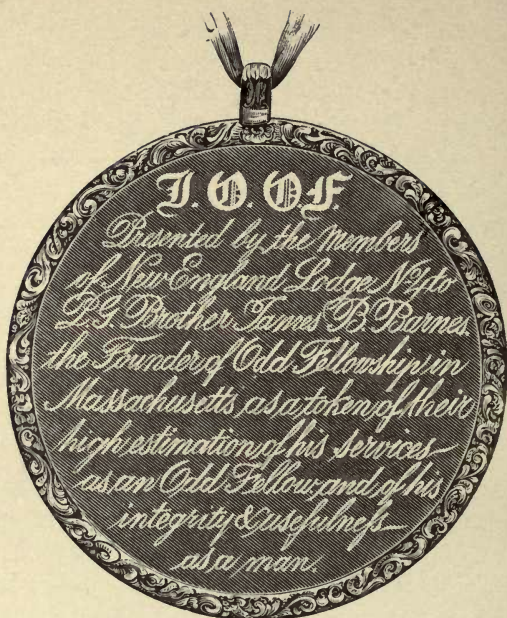 I. O. O. F.
Presented by the Members
of New England Lodge No 4 to
P.G. Brother James B. Barnes
the Founder of Odd Fellowship in
Massachusetts, as a token of their
high estimation of his services
as an Odd Fellow, and of his
integrity & usefulness
as a man.